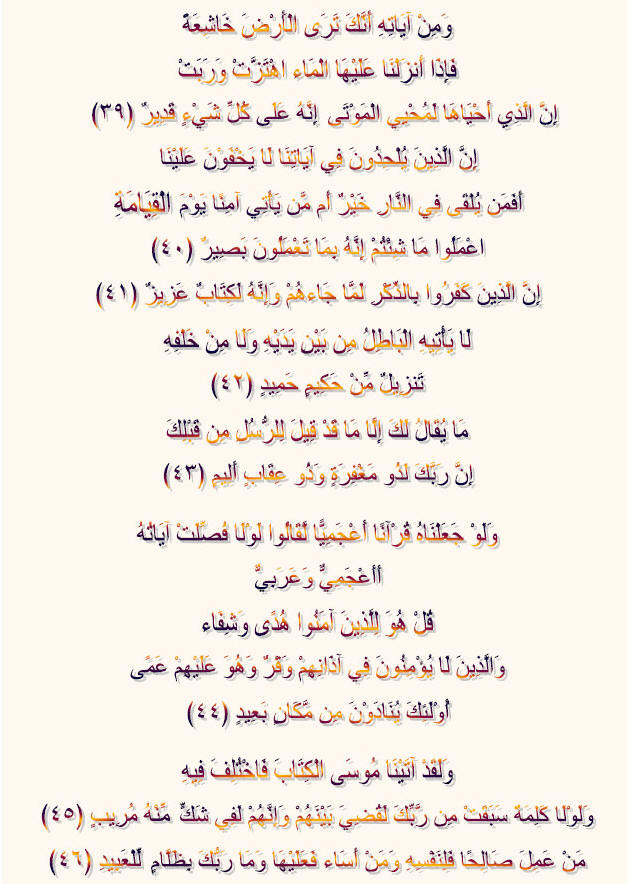 وَمِنْ آيَاتِهِ أَنَّكَ تَرَى الْأَرْضَ خَاشِعَةً
فَإِذَا أَنزَلْنَا عَلَيْهَا الْمَاء اهْتَزَّتْ وَرَبَتْ
إِنَّ الَّذِي أَحْيَاهَا لَمُحْيِي الْمَوْتَى إِنَّهُ عَلَى كُلِّ شَيْءٍ قَدِيرٌ (٣٩)
إِنَّ الَّذِينَ يُلْحِدُونَ فِي آيَاتِنَا لَا يَخْفَوْنَ عَلَيْنَا
أَفَمَن يُلْقَى فِي النَّارِ خَيْرٌ أَم مَّن يَأْتِي آمِنًا يَوْمَ الْقِيَامَةِ
اعْمَلُوا مَا شِئْتُمْ إِنَّهُ بِمَا تَعْمَلُونَ بَصِيرٌ (٤٠)
إِنَّ الَّذِينَ كَفَرُوا بِالذِّكْرِ لَمَّا جَاءهُمْ وَإِنَّهُ لَكِتَابٌ عَزِيزٌ (٤١)
لَا يَأْتِيهِ الْبَاطِلُ مِن بَيْنِ يَدَيْهِ وَلَا مِنْ خَلْفِهِ
تَنزِيلٌ مِّنْ حَكِيمٍ حَمِيدٍ (٤٢)
مَا يُقَالُ لَكَ إِلَّا مَا قَدْ قِيلَ لِلرُّسُلِ مِن قَبْلِكَ
إِنَّ رَبَّكَ لَذُو مَغْفِرَةٍ وَذُو عِقَابٍ أَلِيمٍ (٤٣)
وَلَوْ جَعَلْنَاهُ قُرْآنًا أَعْجَمِيًّا لَّقَالُوا لَوْلَا فُصِّلَتْ آيَاتُهُ
أَأَعْجَمِيٌّ وَعَرَبِيٌّ
قُلْ هُوَ لِلَّذِينَ آمَنُوا هُدًى وَشِفَاء
وَالَّذِينَ لَا يُؤْمِنُونَ فِي آذَانِهِمْ وَقْرٌ وَهُوَ عَلَيْهِمْ عَمًى
أُوْلَئِكَ يُنَادَوْنَ مِن مَّكَانٍ بَعِيدٍ (٤٤)
وَلَقَدْ آتَيْنَا مُوسَى الْكِتَابَ فَاخْتُلِفَ فِيهِ
وَلَوْلَا كَلِمَةٌ سَبَقَتْ مِن رَّبِّكَ لَقُضِيَ بَيْنَهُمْ وَإِنَّهُمْ لَفِي شَكٍّ مِّنْهُ مُرِيبٍ (٤٥)
مَنْ عَمِلَ صَالِحًا فَلِنَفْسِهِ وَمَنْ أَسَاء فَعَلَيْهَا وَمَا رَبُّكَ بِظَلَّامٍ لِّلْعَبِيدِ (٤٦)